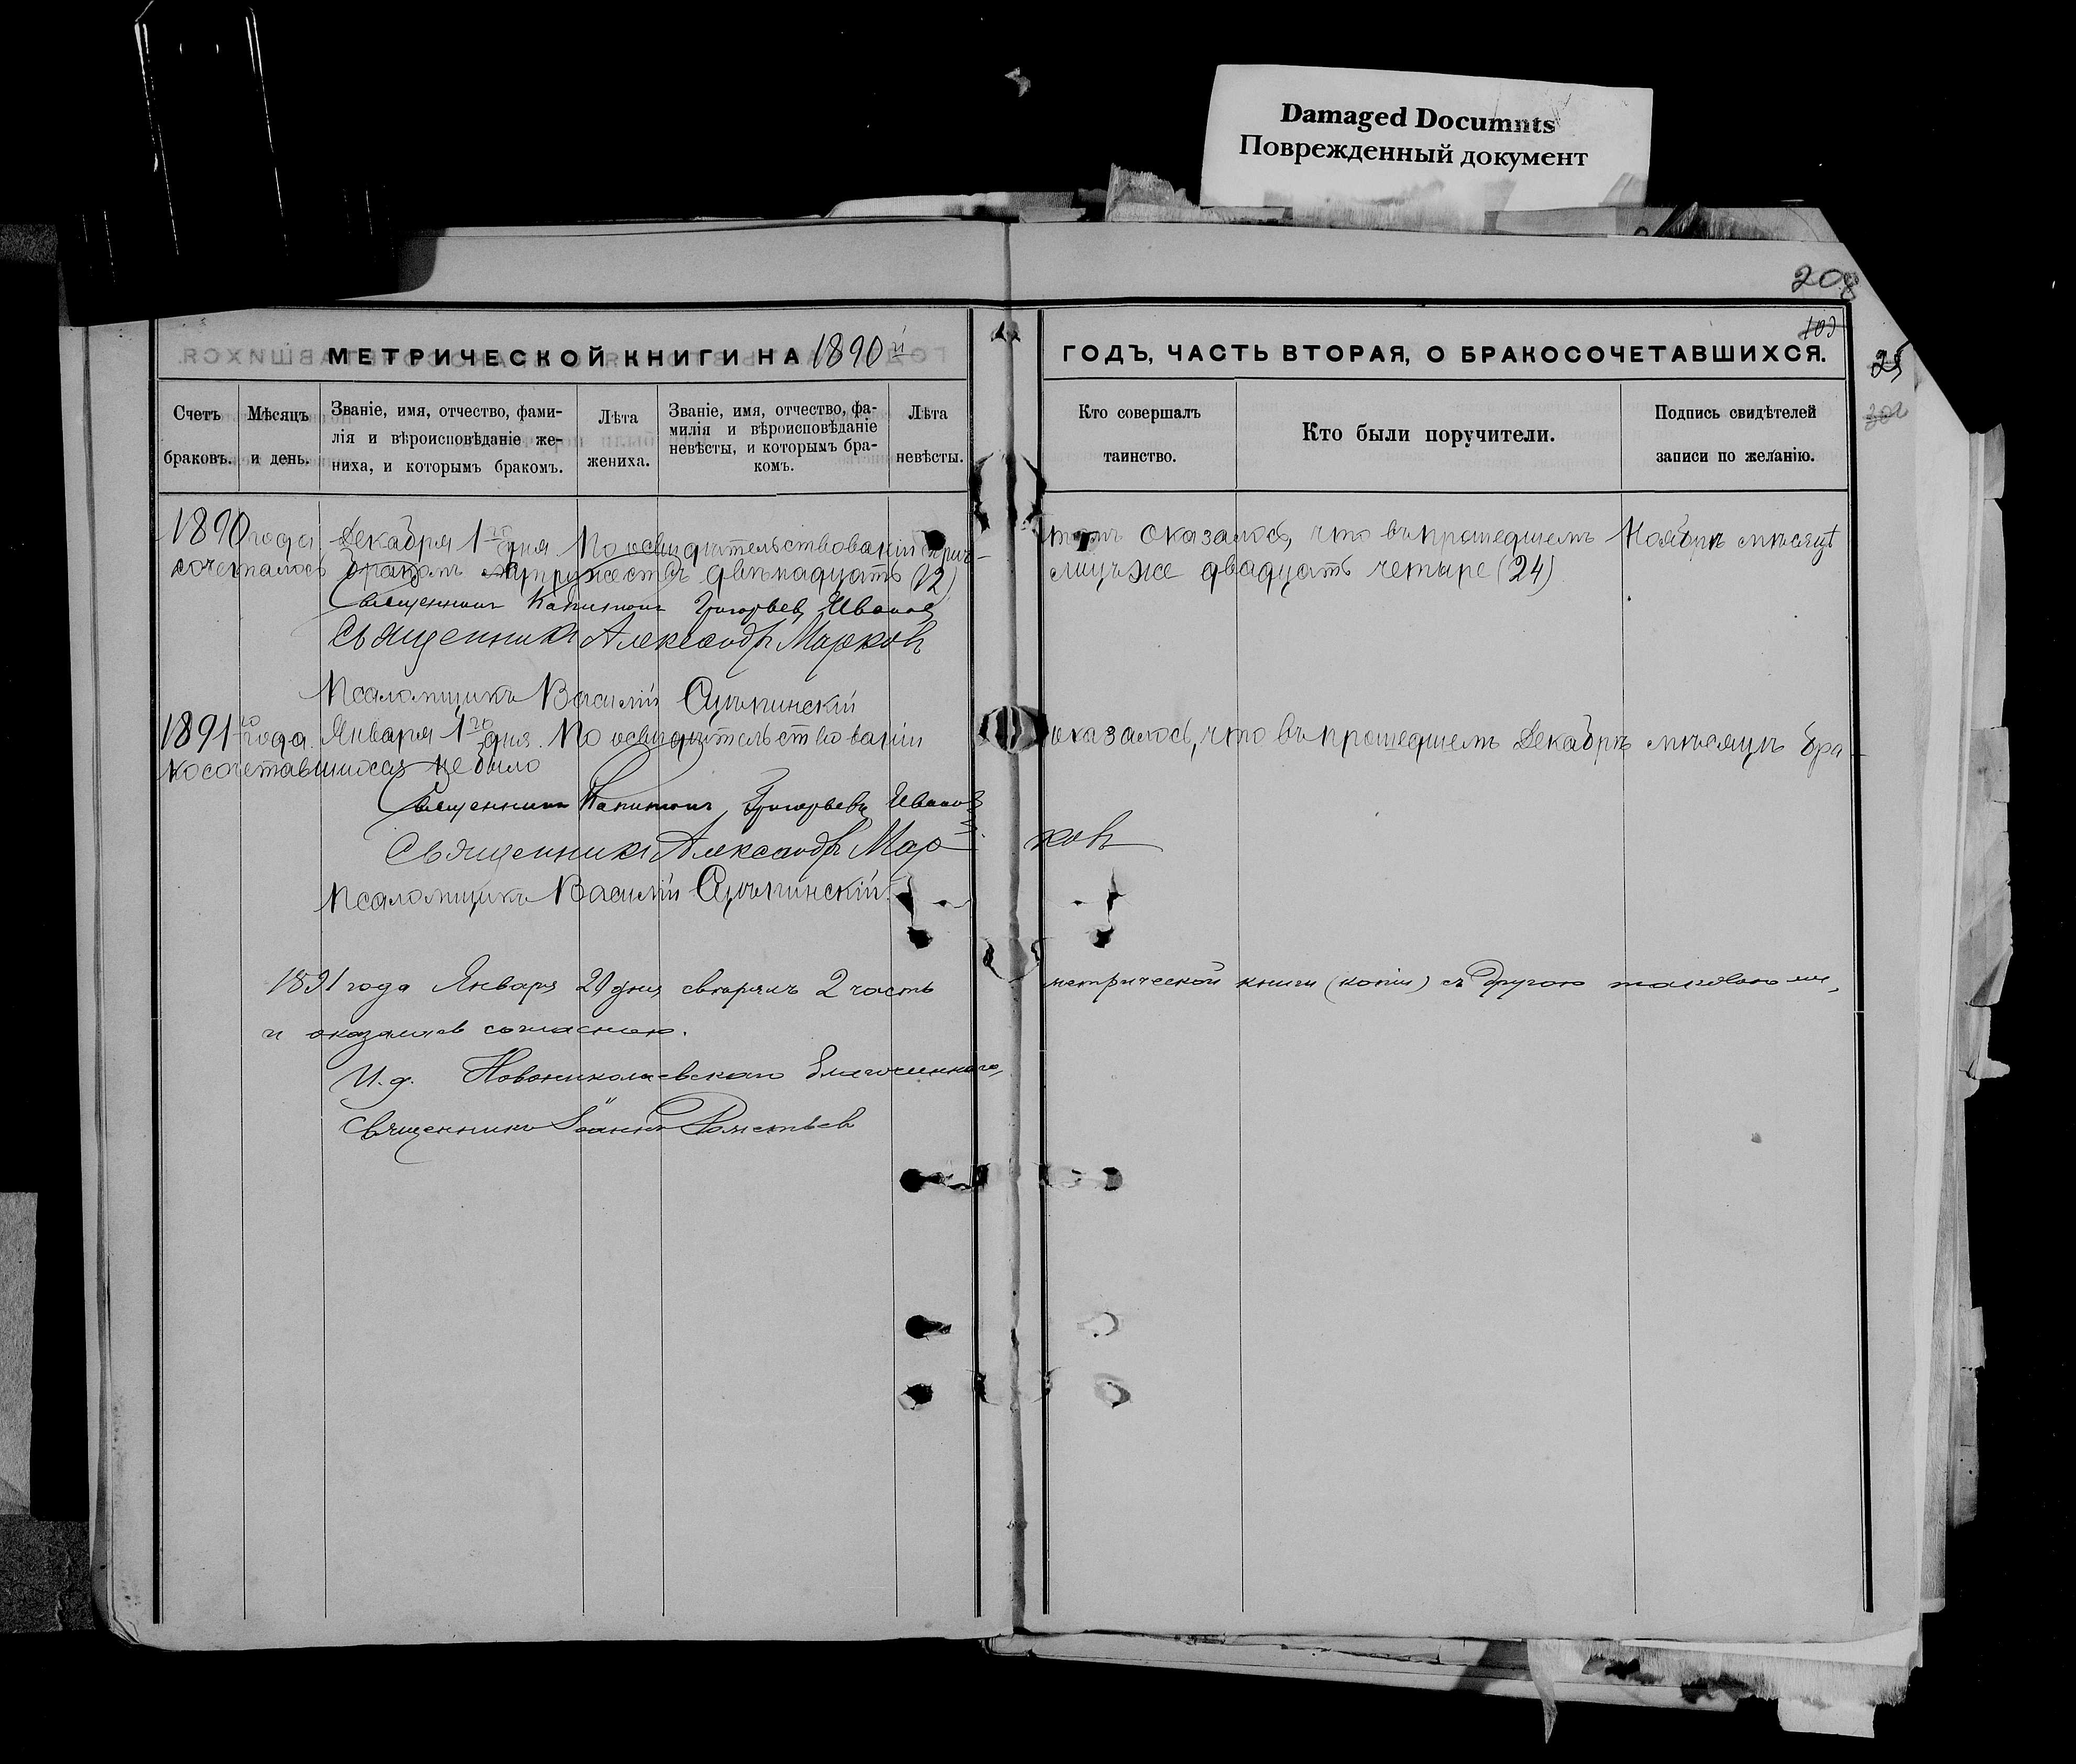 Damaged Documnts
Поврежденный документ
208
103
25
302
МЕТРИЧЕСКОЙ КНИГИ НА 1890й ГОДЪ, ЧАСТЬ ВТОРАЯ, О БРАКОСОЧЕТАВШИХСЯ.
Счетъ браковъ.
Мѣсяцъ и день.
Званіе, имя, отчество, фами-
лія и вѣроисповѣданіе же-
ниха, и которымъ бракомъ.
Лѣта жениха.
Званіе, имя, отчество, фа-
милія и вѣроисповѣданіе
невѣсты, и которымъ бра-
комъ.
Лѣта невѣсты.
Кто совершалъ таинство.
Кто были поручители.
Подпись свидѣтелей записи по желанію.
1890 года Декабря 1го дня. По освидѣтельствованіи оказалось, что въ прошедшемъ Ноябрѣ мѣсяцѣ
сочеталось бракомъ супружествъ двѣнадцать (12) лицъ же двадцать четыре (24)
Священникъ Капитонъ Григорьевъ Ивановъ
Священникъ Александръ Марковъ
Псаломщикъ Василій
1891го года. Января 1го дня. По освидѣтельствованіи оказалось, что въ прошедшемъ Декабрѣ мѣсяцѣ бра-
косочетавшихся не было
Священникъ Капитонъ Григорьевъ Ивановъ
Священникъ Александръ Марковъ
Псаломщикъ Василій
1891 года Января 29 дня свѣрялъ 2 часть метрической книги (копіи) съ другою таковою же,
и оказалась согласною.
И. д. Новониколаевскаго благочиннаго,
Священникъ Іоаннъ